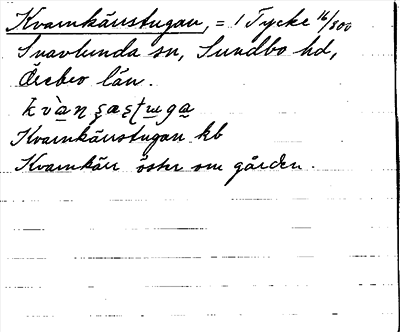 Kvarnkärrstugan, = 1 Tycke 16/800
Snavlunda sn, Sundbo hd,
Örebro län.
Kvarnkärrstugan kb
Kvarnkärr öster om gården.